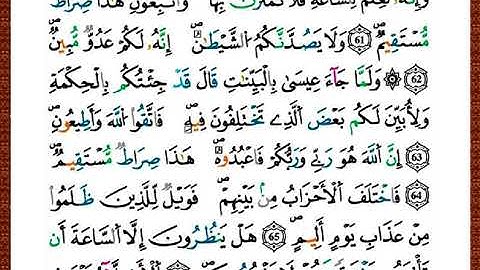 وَإِنَّهُۥ لَعِلْمٌ لِّلسَّاعَةِ فَلَا تَمْتَرُنَّ بِهَا وَٱتَّبِعُونِ هَٰذَا صِرَٰطٌ
مُّسْتَقِيمٌ 61 وَلَا يَصُدَّنَّكُمُ ٱلشَّيْطَٰنُ إِنَّهُۥ لَكُمْ عَدُوٌّ مُّبِينٌ
62 ۞ وَلَمَّا جَآءَ عِيسَىٰ بِٱلْبَيِّنَٰتِ قَالَ قَدْ جِئْتُكُم بِٱلْحِكْمَةِ
وَلِأُبَيِّنَ لَكُم بَعْضَ ٱلَّذِى تَخْتَلِفُونَ فِيهِ فَٱتَّقُوا۟ ٱللَّهَ وَأَطِيعُونِ
63 إِنَّ ٱللَّهَ هُوَ رَبِّى وَرَبُّكُمْ فَٱعْبُدُوهُ هَٰذَا صِرَٰطٌ مُّسْتَقِيمٌ
64 فَٱخْتَلَفَ ٱلْأَحْزَابُ مِنۢ بَيْنِهِمْ فَوَيْلٌ لِّلَّذِينَ ظَلَمُوا۟
مِنْ عَذَابِ يَوْمٍ أَلِيمٍ 65 هَلْ يَنظُرُونَ إِلَّا ٱلسَّاعَةَ أَن